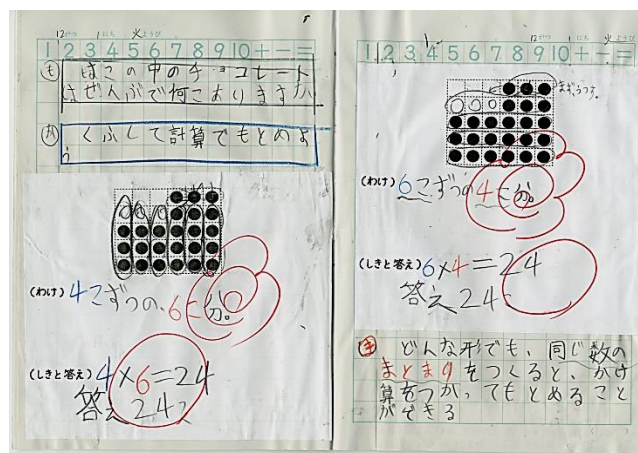 12がつ 1にち 火ようび
1 2 3 4 5 6 7 8 9 10 + − =
も はこの中のチョコレート
はぜんぶで何こありますか
か くふうして計算でもとめよ
う
(わけ) 4こずつの、6こ分。
(しきと答え) 4×6=24
答え 24こ
12がつ 1にち 火ようび
1 2 3 4 5 6 7 8 9 10 + − =
(わけ) 6こずつの4こ分。
(しきと答え) 6×4=24
答え 24こ
ま どんな形でも、同じ数の
まとまりをつくると、かけ
算をつかってもとめること
ができる